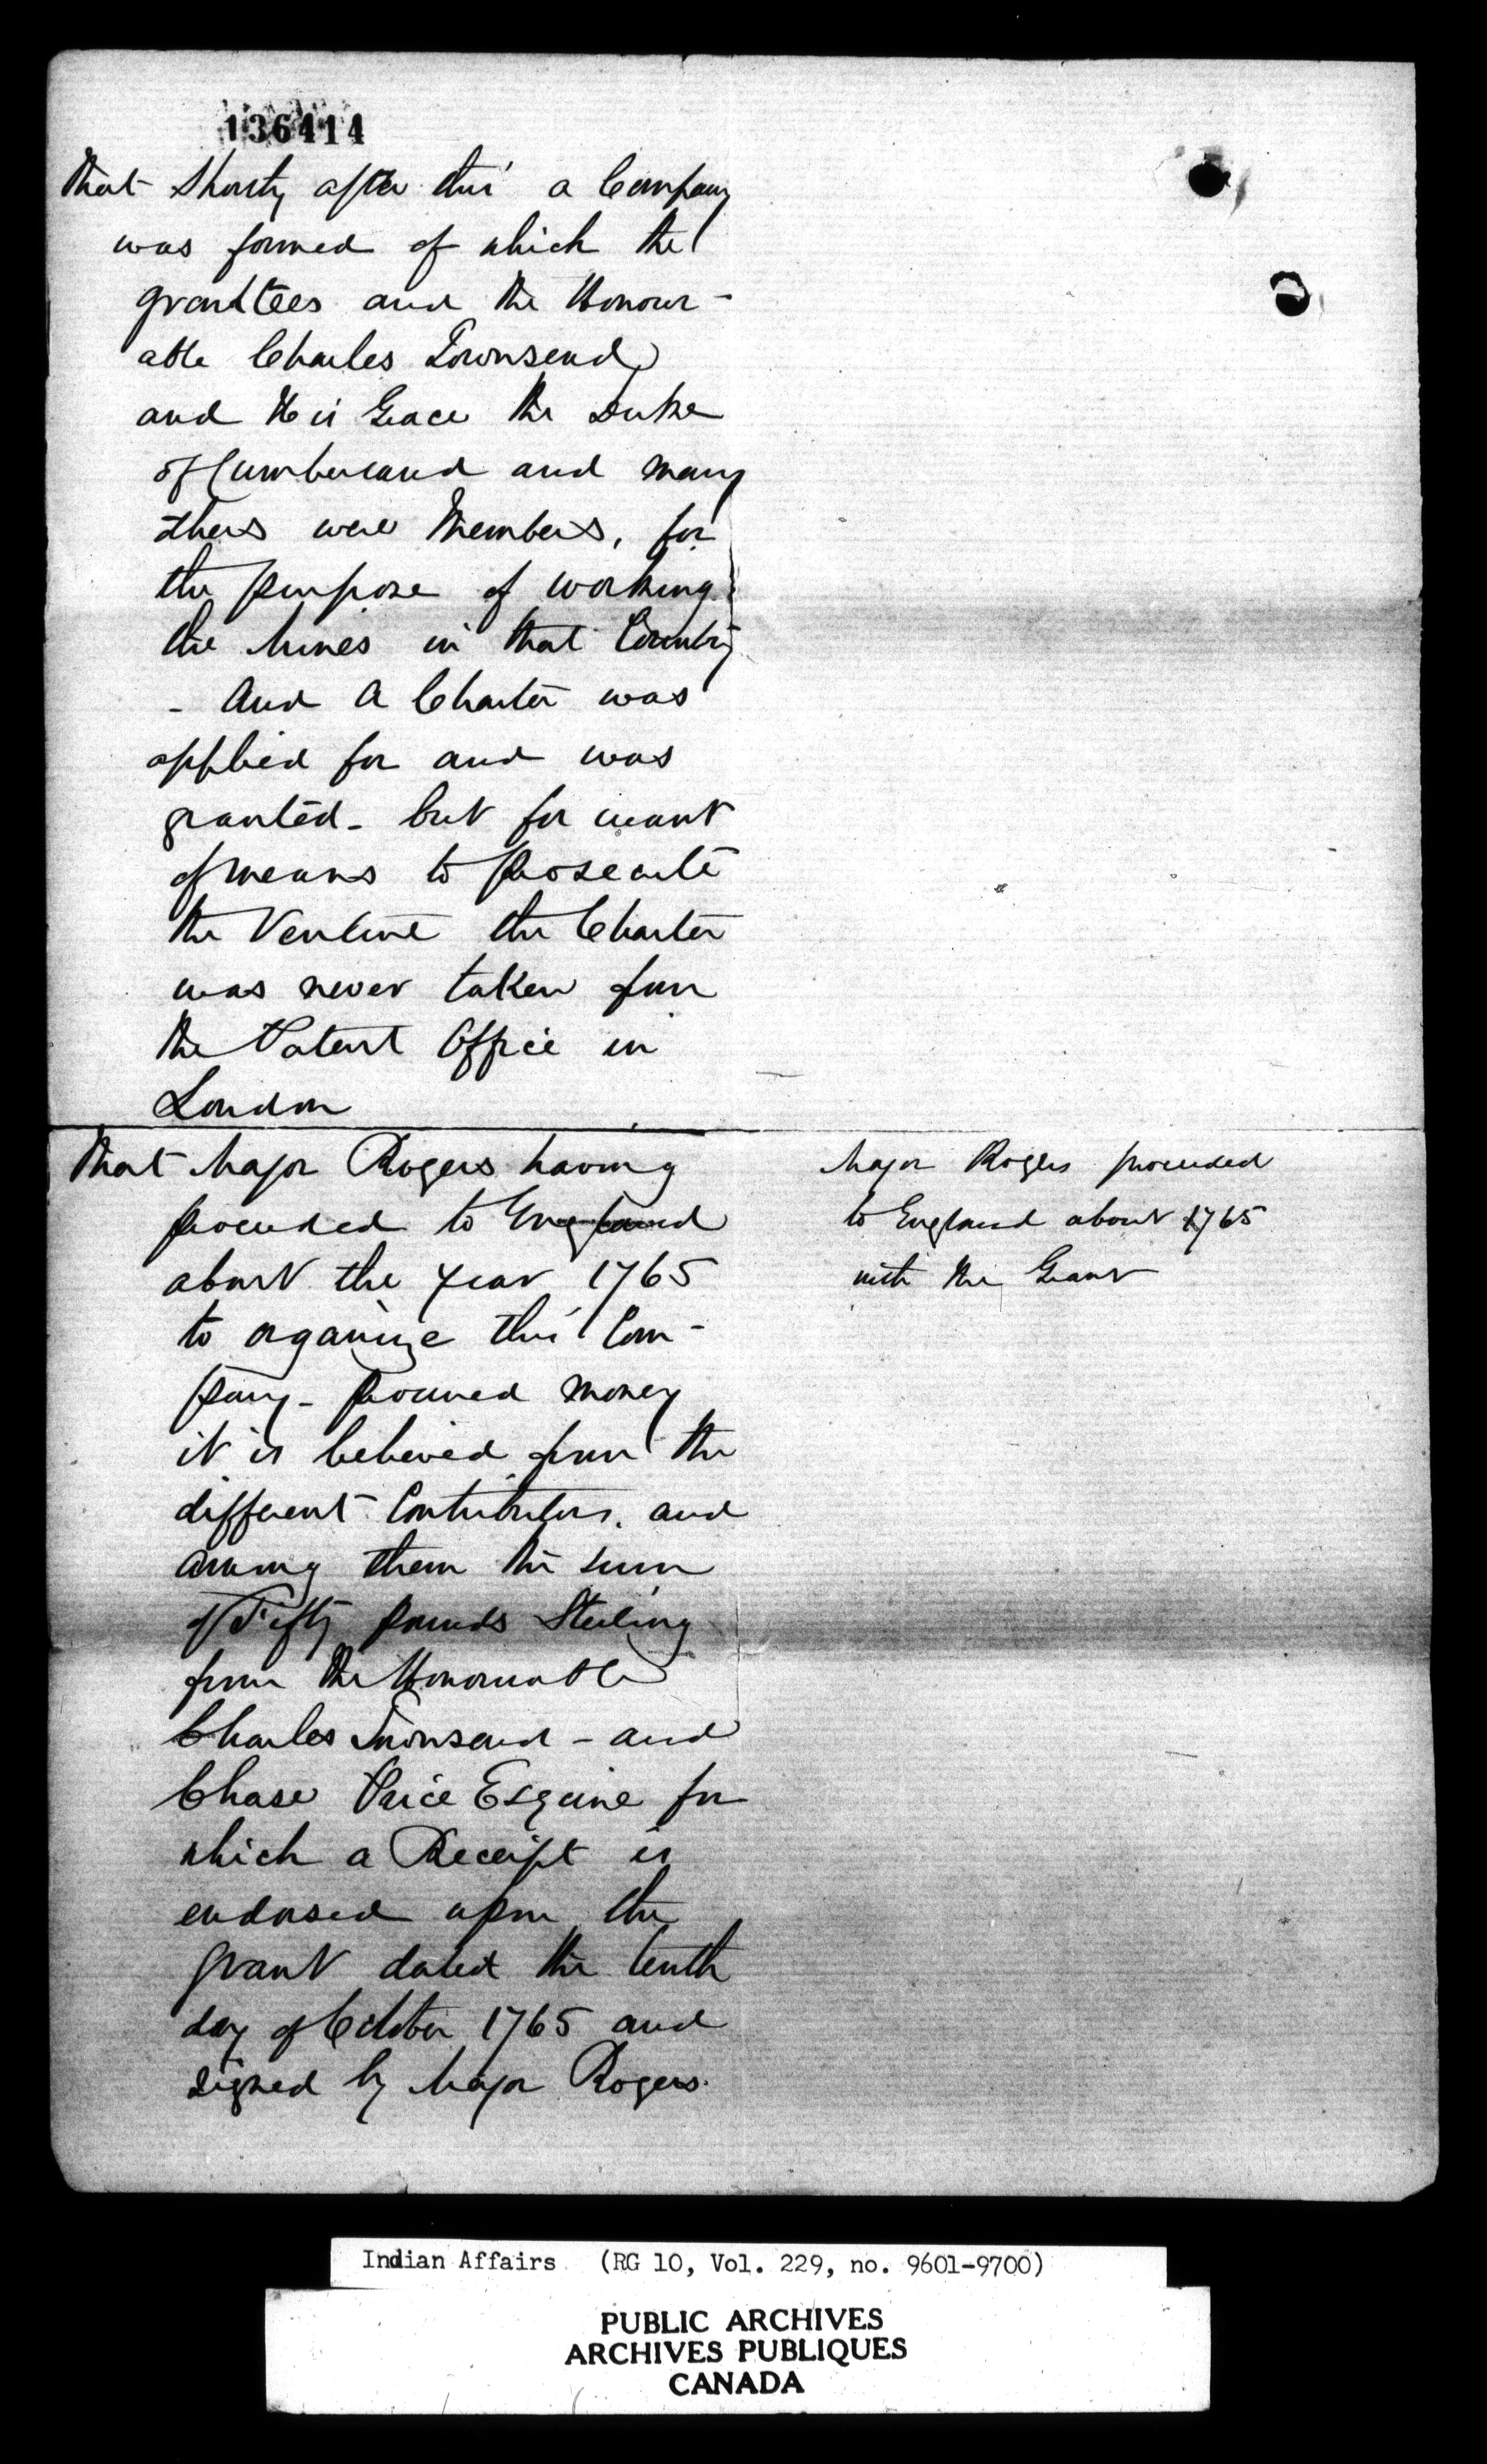 136414
That Shortly after this a Company
was formed of which the
grantees and the Honour-
able Charles Townsend
and His Grace the Duke
of Cumberland and many
others were Members, for
the purpose of working
the Mines in that Country
- And a Charter was
applied for and was
granted - but for want
of means to prosecute
the Venture the Charter
was never taken from
the Patent Office in
London
That Major Rogers having
proceeded to England
about the year 1765
to organize this Com-
pany - procured money
it is believed from the
different Contributors. and
among them the sum
of Fifty pounds Sterling
from the Honourable
Charles Townsend - and
Chase Price Esquire for
which a Receipt is
endorsed upon the
grant dated the tenth
day of October 1765 and
signed by Major Rogers.
Major Rogers proceeded
to England about 1765
with the Grant
Indian Affairs (RG 10, Vol. 229, no. 9601-9700)
PUBLIC ARCHIVES
ARCHIVES PUBLIQUES
CANADA